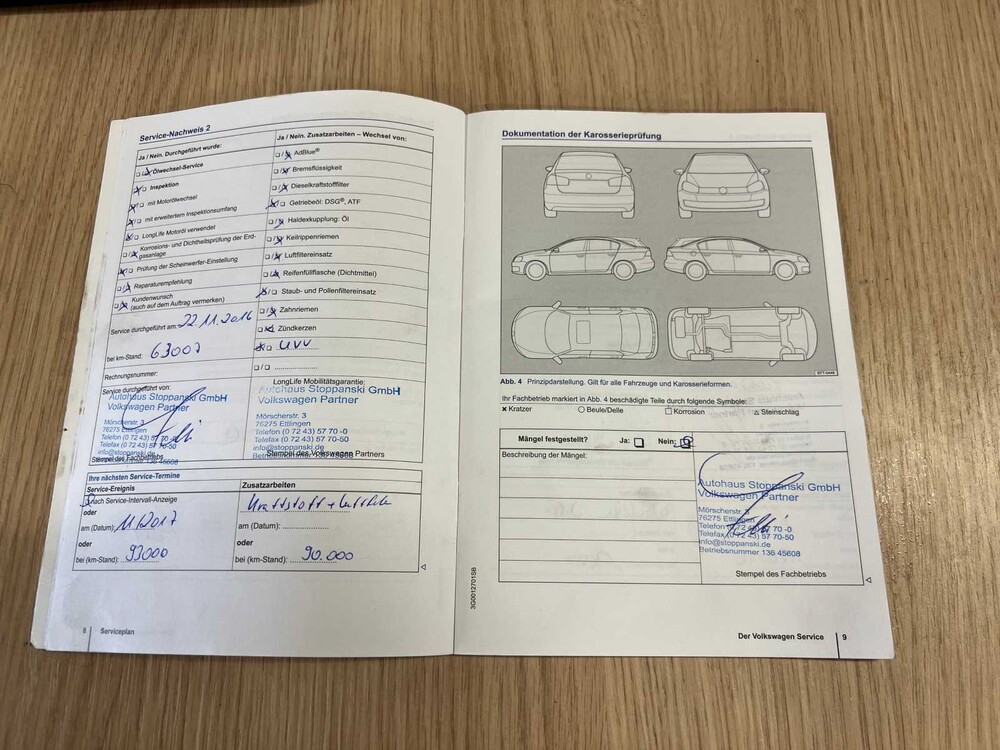 Service-Nachweis 2
Ja / Nein. Durchgeführt wurde:
Ölwechsel-Service
Inspektion
mit Motorölwechsel
mit erweitertem Inspektionsumfang
LongLife Motoröl verwendet
Korrosions- und Dichtheitsprüfung der Erd-
gasanlage
Prüfung der Scheinwerfer-Einstellung
Reparaturempfehlung
Kundenwunsch
(auch auf dem Auftrag vermerken)
Service durchgeführt am: 22.11.2016
bei km-Stand: 63007
Rechnungsnummer:
Service durchgeführt von:
Autohaus Stoppanski GmbH
Volkswagen Partner
Mörscherstr. 3
76275 Ettlingen
Telefon (0 72 43) 57 70 -0
Telefax (0 72 43) 57 70-50
info@stoppanski.de
Betriebsnummer 136 45608
Stempel des Fachbetriebs
Ja / Nein. Zusatzarbeiten – Wechsel von:
AdBlue®
Bremsflüssigkeit
Dieselkraftstofffilter
Getriebeöl: DSG®, ATF
Haldexkupplung: Öl
Keilrippenriemen
Luftfiltereinsatz
Reifenfüllflasche (Dichtmittel)
Staub- und Pollenfiltereinsatz
Zahnriemen
Zündkerzen
UVV
LongLife Mobilitätsgarantie:
Autohaus Stoppanski GmbH
Volkswagen Partner
Mörscherstr. 3
76275 Ettlingen
Telefon (0 72 43) 57 70 -0
Telefax (0 72 43) 57 70-50
info@stoppanski.de
Betriebsnummer 136 45608
Stempel des Volkswagen Partners
Ihre nächsten Service-Termine
Service-Ereignis
nach Service-Intervall-Anzeige
oder
am (Datum): 11/2017
oder
bei (km-Stand): 93000
Zusatzarbeiten
Kraftstoff + Luftfilter
am (Datum):
oder
bei (km-Stand): 90.000
8 Serviceplan
Dokumentation der Karosserieprüfung
Abb. 4 Prinzipdarstellung. Gilt für alle Fahrzeuge und Karosserieformen.
Ihr Fachbetrieb markiert in Abb. 4 beschädigte Teile durch folgende Symbole:
Kratzer Beule/Delle Korrosion Steinschlag
Mängel festgestellt? Ja: Nein:
Beschreibung der Mängel:
Autohaus Stoppanski GmbH
Volkswagen Partner
Mörscherstr. 3
76275 Ettlingen
Telefon (0 72 43) 57 70 -0
Telefax (0 72 43) 57 70-50
info@stoppanski.de
Betriebsnummer 136 45608
Stempel des Fachbetriebs
3G0012701SB
Der Volkswagen Service 9